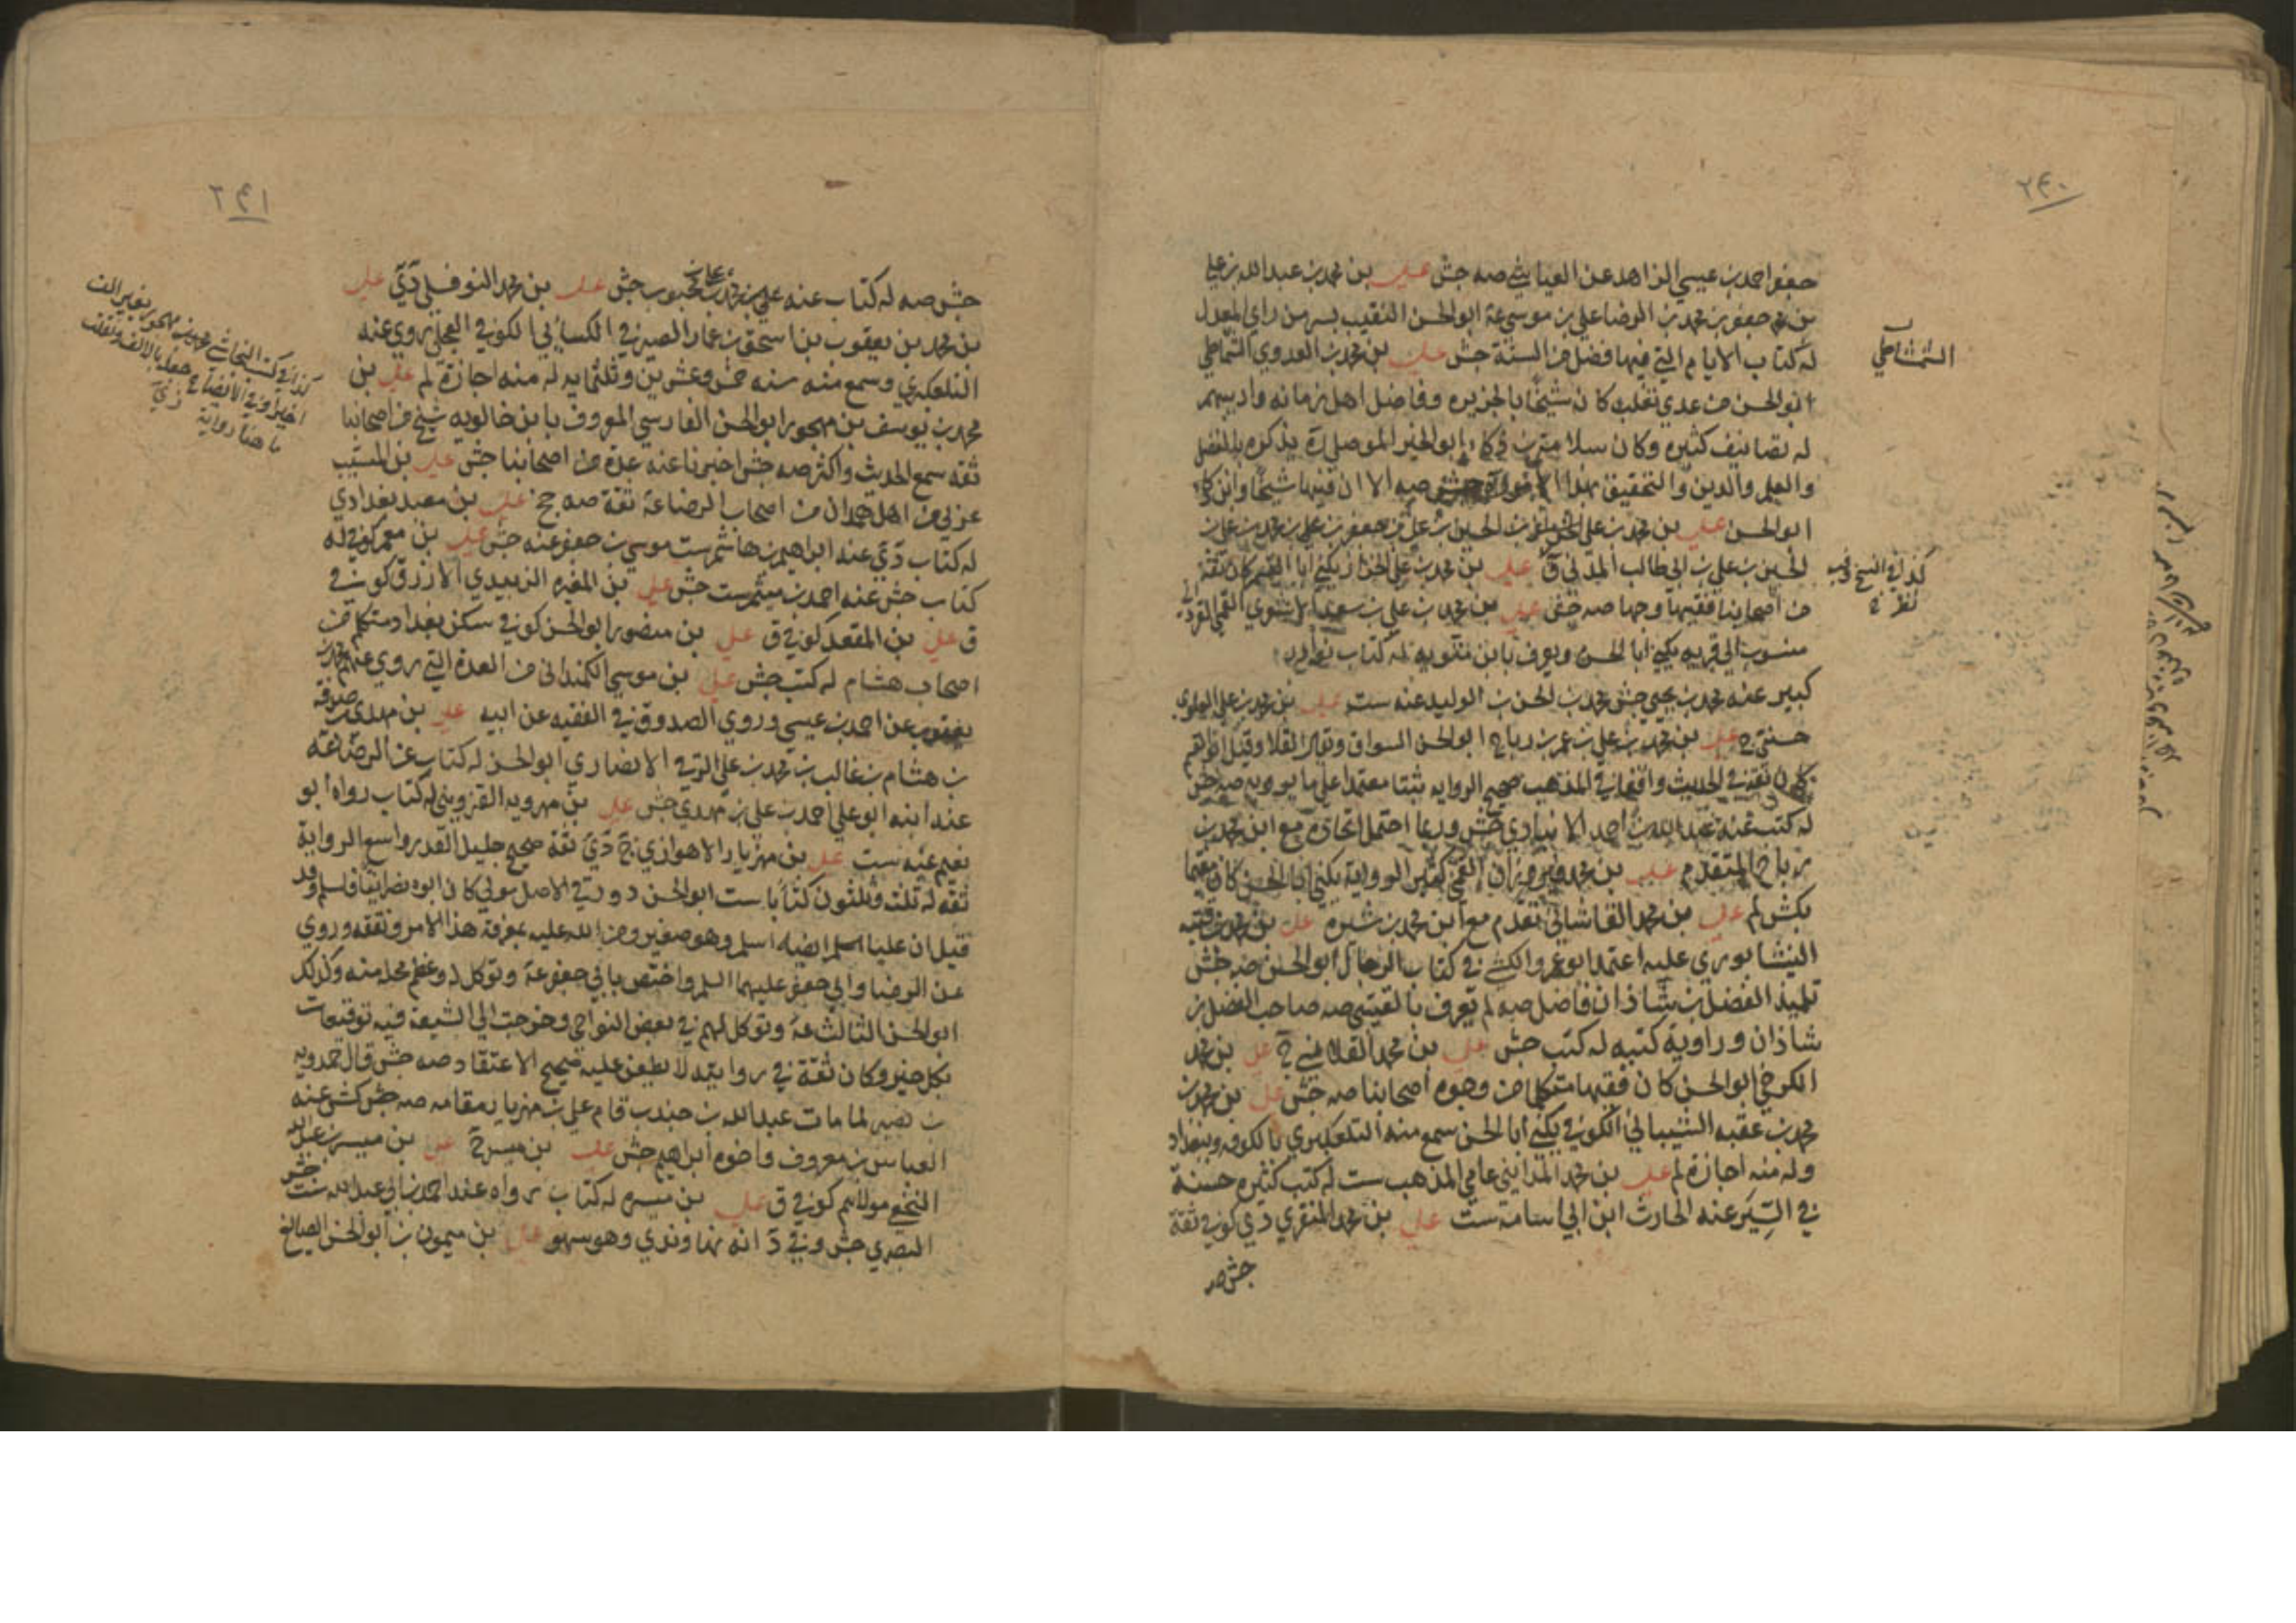 ٢٤٠
جعفر احمد بن عيسى الزاهد عن العياشي صه جش علي بن محمد بن عبدالله بن علي
بن جعفر بن محمد بن الرضا علي بن موسى ع ابوالحسن النقيب بسر من راى المعدل
له كتاب الايام التي فيها فضل من السنة جش علي بن محمد العدوي الشمشاطي
ابوالحسن من عدي تغلب كان شيخا بالجزيره وفاضل اهل زمانه واديبهم
له تصانيف كثيره وكان سلامة بن ذكا ابوالخير الموصلي ره يذكره بالفضل
والعلم والدين والتحقيق بهذا الامر صه الا ان فيها شيخنا وابن ذكا
ابوالحسن علي بن محمد بن علي بن الحسين بن علي بن جعفر بن علي بن محمد بن علي بن
الحسين بن علي بن ابي طالب المدني ق علي بن محمد بن علي الخزاز يكنى ابا القسم كان ثقة
من اصحابنا فقيها وجها صه جش علي بن محمد بن علي بن سعد الاشعري القمي القزداني
منسوب الى قرية يكنى ابا الحسن ويعرف بابن متويه له كتاب نوادر
كبير عنه محمد بن يحيى جش محمد بن الحسن بن الوليد عنه ست علي بن محمد بن علي العلوي
حسنى ج علي بن محمد بن علي بن عمر بن رباح ابوالحسن السواق ويقال القلا وقيل
كان ثقة في الحديث واقفا في المذهب صحيح الروايه ثبتا معتمدا على ما يرويه صه جش
له كتب عنه عبدالله بن احمد الانباري جش وربما احتمل اتحاده مع ابن محمد بن
رباح المتقدم علي بن محمد فيروزان القمي كثير الرواية يكنى ابا الحسن كان مقيما
بكش لم علي بن محمد القاشاني تقدم مع ابن محمد بن شيره علي بن محمد بن قتيبه
النيشابوري عليه اعتمد ابو عمرو الكشي في كتاب الرجال ابوالحسن صه جش
تلميذ الفضل بن شاذان فاضل صه لم يعرف بالقتيبي صه صاحب الفضل بن
شاذان وراوية كتبه له كتب جش علي بن محمد القلانسي ج علي بن محمد
الكرخي ابوالحسن كان فقيها متكلما من وجوه اصحابنا صه جش علي بن محمد بن
محمد بن عقبه الشيباني الكوفي يكنى ابا الحسن سمع منه التلعكبري بالكوفه وبغداد
وله منه اجازة لم علي بن محمد المدايني عامي المذهب ست له كتب كثيره حسنة
في السير عنه الحارث ابن ابي اسامة ست علي بن محمد المنقري دي كوفي ثقة
جش صه
الشمشاطي
كذا في النسخ وفيه
نظر
٢٤١
جش صه له كتاب عنه علي بن محمد بن علي بن محبوب جش علي بن محمد النوفلي دي علي
بن محمد بن يعقوب بن اسحق بن عمار الصيرفي الكسائي الكوفي العجلي روى عنه
التلعكبري وسمع منه سنه خمس وعشرين وثلثمايه له منه اجازة لم علي بن
محمد بن يوسف بن مهجور ابوالحسن الفارسي المعروف بابن خالويه شيخ من اصحابنا
ثقه سمع الحديث واكثر صه جش اخبرنا عنه عدة من اصحابنا جش علي بن المسيب
عربي من اهل همدان من اصحاب الرضا ع ثقة صه جخ علي بن معبد بغدادي
له كتاب دي عنه ابراهيم بن هاشم ست موسى بن جعفر عنه جش علي بن معمر كوفي له
كتاب جش عنه احمد بن ميثم ست جش علي بن المغيره الزبيدي الازرق كوفي
ق علي بن المقعد كوفي ق علي بن منصور ابوالحسن كوفي سكن بغداد متكلم من
اصحاب هشام له كتب جش علي بن موسى الكمنداني من العدة التي روى عنهم محمد بن
يعقوب عن احمد بن عيسى وروى الصدوق في الفقيه عن ابيه علي بن مهدي بن صدقه
بن هشام بن غالب بن محمد بن علي الرقي الانصاري ابوالحسن له كتاب عن الرضا ع
عنه ابنه ابو علي احمد بن علي بن مهدي جش علي بن مهرويه القزويني له كتاب رواه ابو
نعيم عنه ست علي بن مهزيار الاهوازي ج دي ثقة صحيح جليل القدر واسع الرواية
ثقه له ثلث وثلثون كتابا ست ابوالحسن دورقي الاصل مولى كان ابوه نصرانيا فاسلم وقد
قيل ان عليا اسلم ايضا اسلم وهو صغير ومن الله عليه بمعرفة هذا الامر وتفقه وروى
عن الرضا وابي جعفر عليهما السلم واختص بابي جعفر ع وتوكل له وعظم محله منه وكذلك
ابوالحسن الثالث ع وتوكل لهم في بعض النواحي وخرجت الى الشيعة فيه توقيعات
بكل خير وكان ثقة في روايته لا يطعن عليه صحيح الاعتقاد صه جش قال حمدويه
بن نصير لما مات عبدالله بن جندب قام علي بن مهزيار مقامه صه جش كش عنه
العباس بن معروف واخوه ابراهيم جش علي بن ميسر ج علي بن ميسر بن عبدالله
النخعي مولاهم كوفي ق علي بن ميسره له كتاب رواه عنه احمد بن ابي عبدالله ست جش
البصري جش وفي د انه نهاوندي وهو سهو علي بن ميمون بن ابوالحسن الصايغ
كذا في كتب النجاشي مهجور بغير الف
اخيرا وفي الايضاح جعله بالالف ونقلت
ما هنا رواية